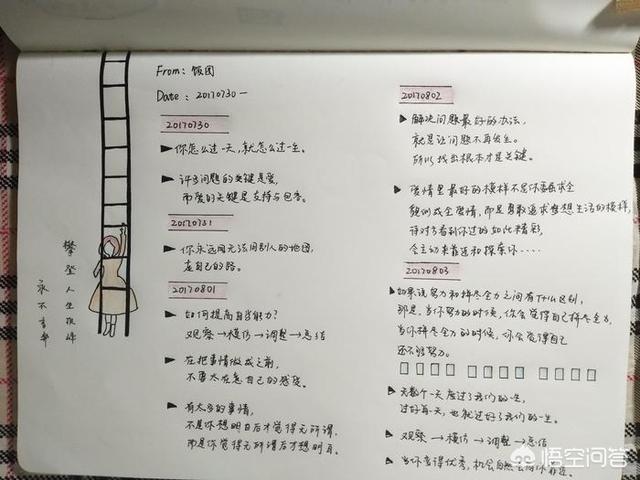 From: 饭团
Date: 20170730一
20170730
你怎么过一天,就怎么过一生。
许多问题的关键是爱,
而爱的关键是支持与包容。
20170731
你永远无法用别人的地图,
走自己的路。
20170801
如何提高自学能力?
观察→模仿→调整→总结
在把事情做成之前,
不要太在意自己的感受。
有太多的事情,
不是你想明白后才觉得无所谓,
而是你觉得无所谓后才想明白。
攀登人生顶峰
永不言弃
20170802
解决问题最好的办法,
就是让问题不再发生。
所以找出根本才是关键。
爱情里最好的模样不是你委屈求全
我们成全爱情,而是勇敢追求梦想生活的模样,
待对方看到你过的如此精彩,
会主动来靠近和探索你……
20170803
如果说努力和拼尽全力之间有什么区别,
那是,当你努力的时候,你会觉得自己拼尽全力,
当你拼尽全力的时候,你会觉得自己
还不够努力。
无数个一天度过了我们的一生,
过好每一天,也就过好了我们的一生。
观察→模仿→调整→总结
当你变得优秀,机会自然会向你靠近。
悟空问答